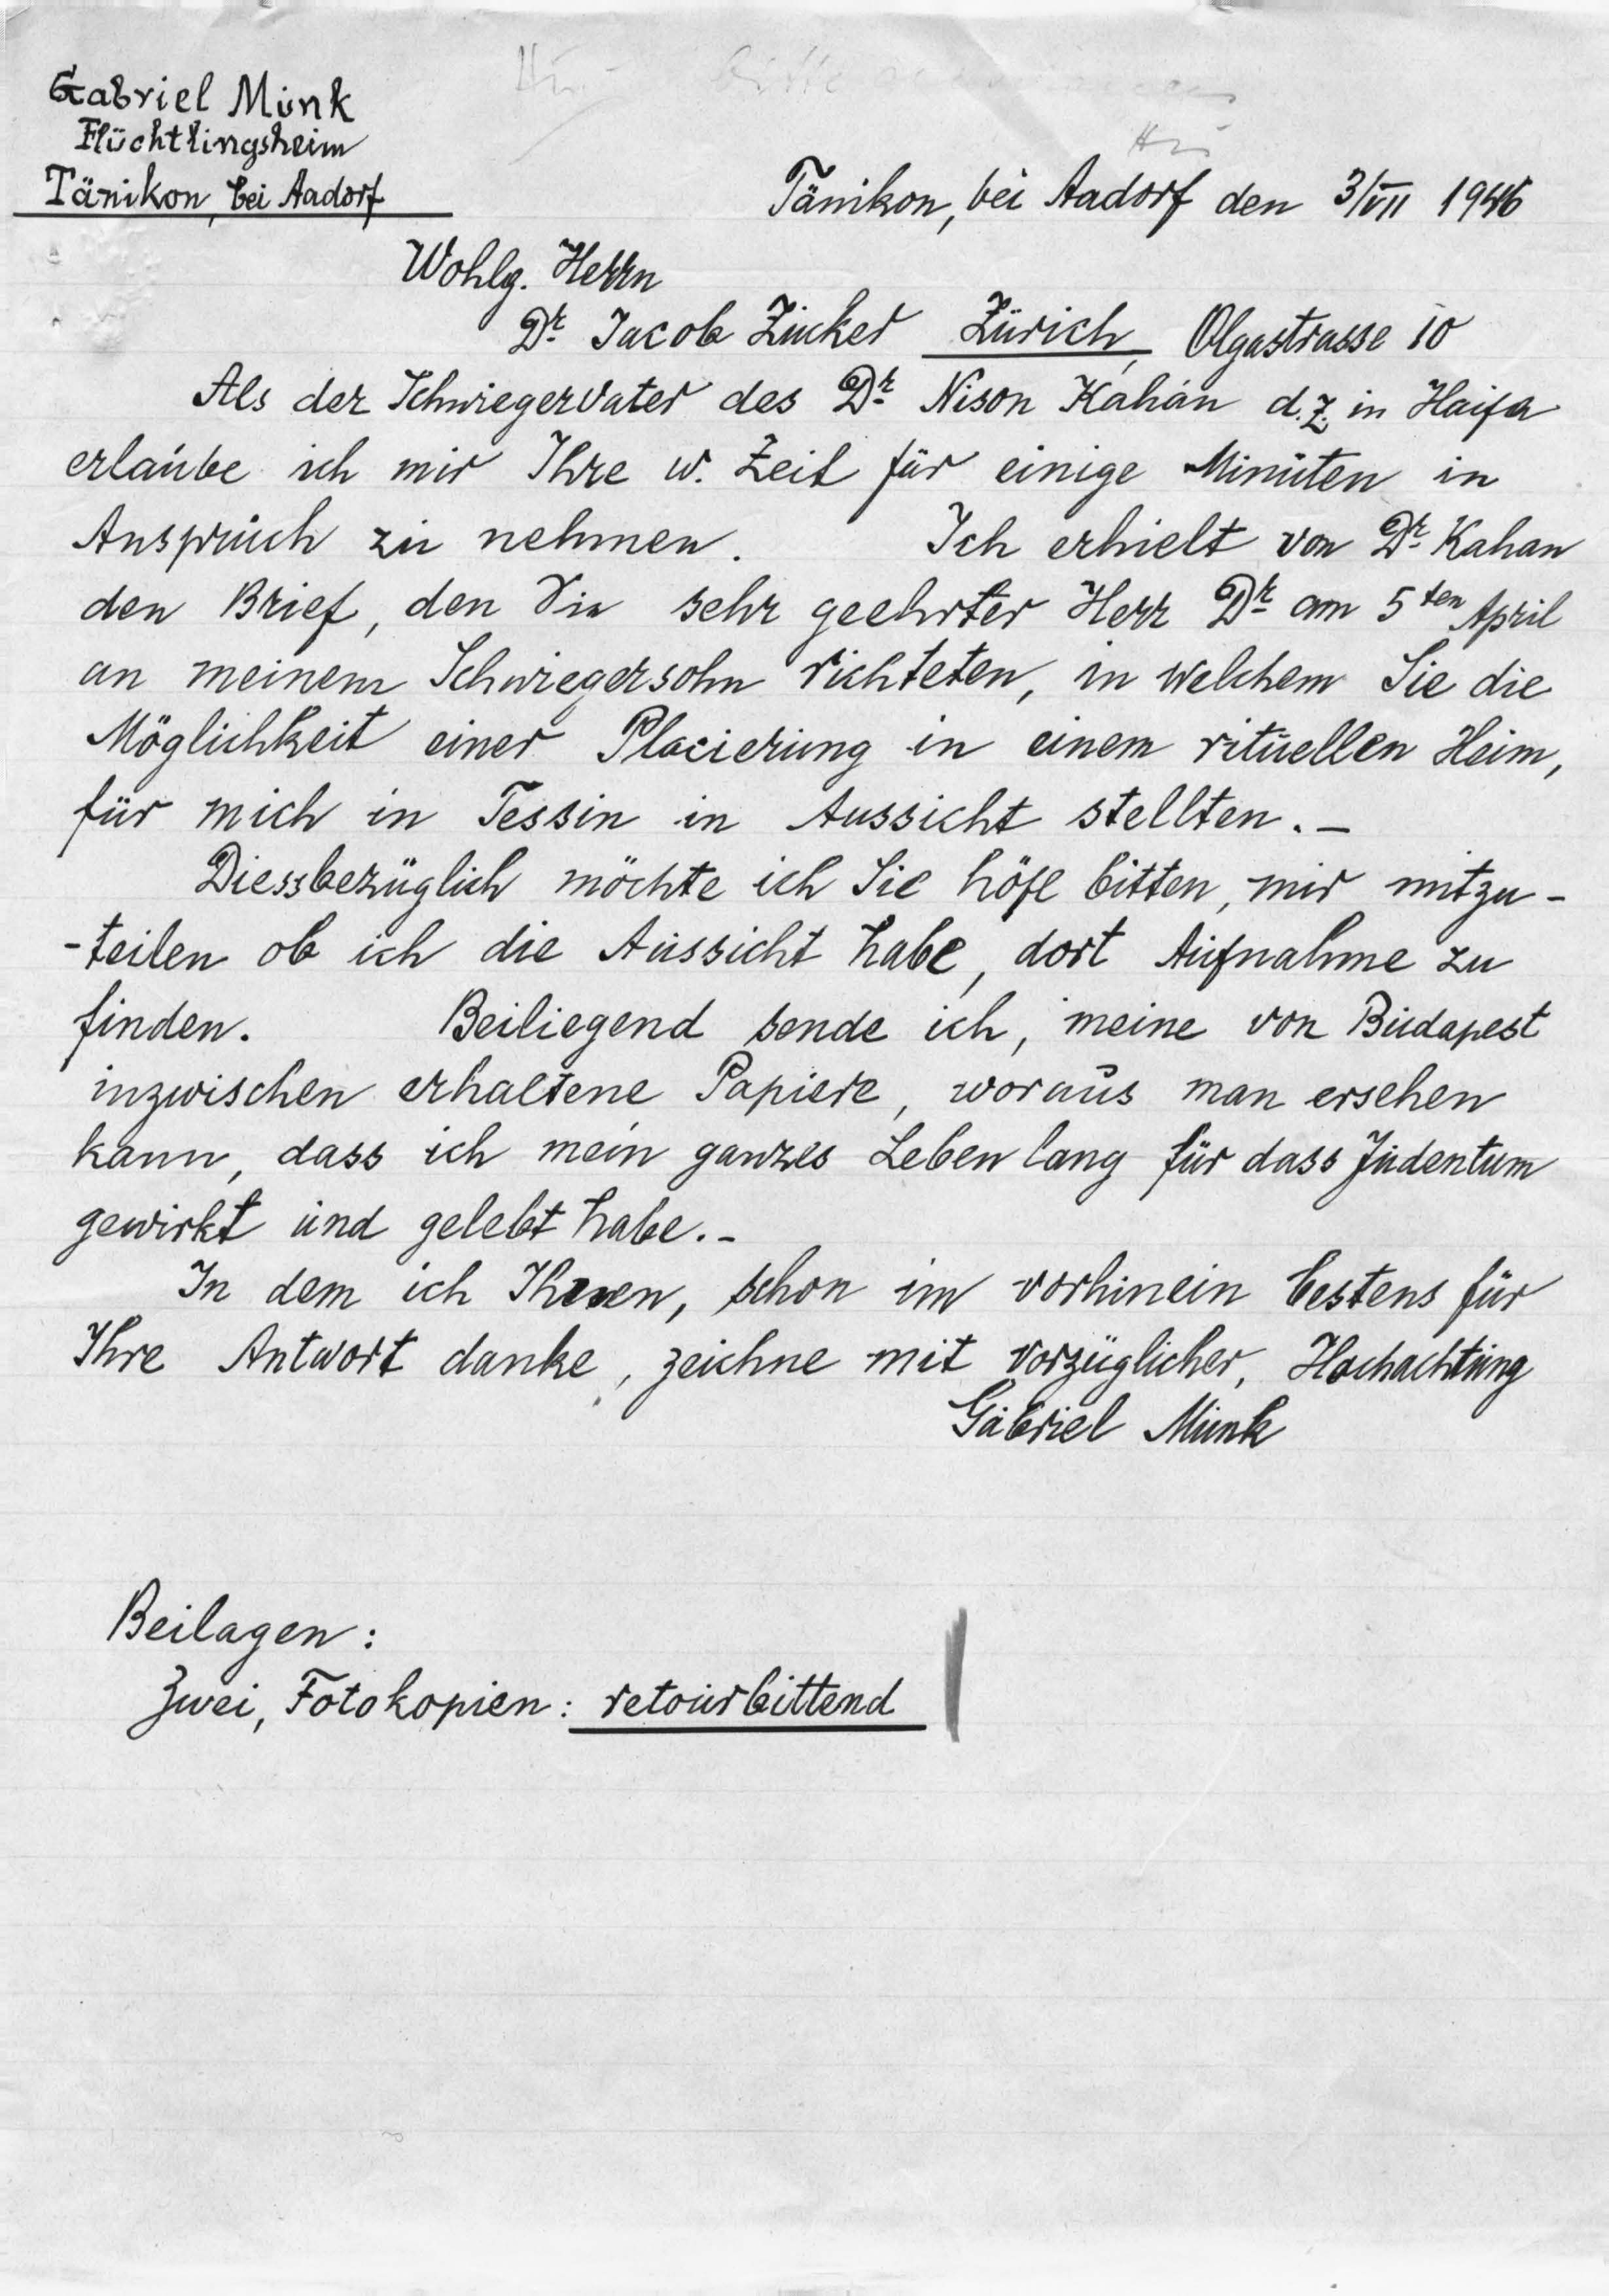 Gabriel Munk
Flüchtlingsheim
Tänikon, bei Aadorf
Tänikon, bei Aadorf den 3/VII 1946
Wohlg. Herrn
Dr. Jacob Zucker Zürich, Olgastrasse 10
Als der Schwiegervater des Dr. Nison Kahán d.Z. in Haifa
erlaube ich mir Ihre w. Zeit für einige Minuten in
Anspruch zu nehmen. Ich erhielt von Dr. Kahan
den Brief, den Sie sehr geehrter Herr Dr. am 5ten April
an meinem Schwiegersohn richteten, in welchem Sie die
Möglichkeit einer Placierung in einem rituellen Heim,
für mich in Tessin in Aussicht stellten. –
Diessbezüglich möchte ich Sie höfl bitten, mir mitzu-
-teilen ob ich die Aussicht habe, dort Aufnahme zu
finden. Beiliegend sende ich, meine von Budapest
inzwischen erhaltene Papiere, woraus man ersehen
kann, dass ich mein ganzes Leben lang für dass Judentum
gewirkt und gelebt habe. –
In dem ich Ihnen, schon im vorhinein bestens für
Ihre Antwort danke, zeichne mit vorzüglicher, Hochachtung
Gabriel Munk
Beilagen:
Zwei, Fotokopien: retourbittend